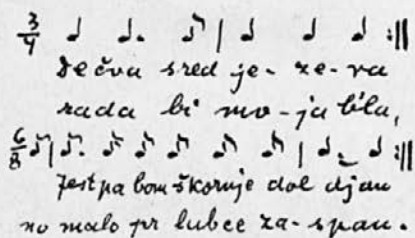 3/4
Dečva sred je-ze-ra
rada bi mo-ja bila,
6/8
Jest pa bom škornje dol djau
no malo pr lubce za-spau.